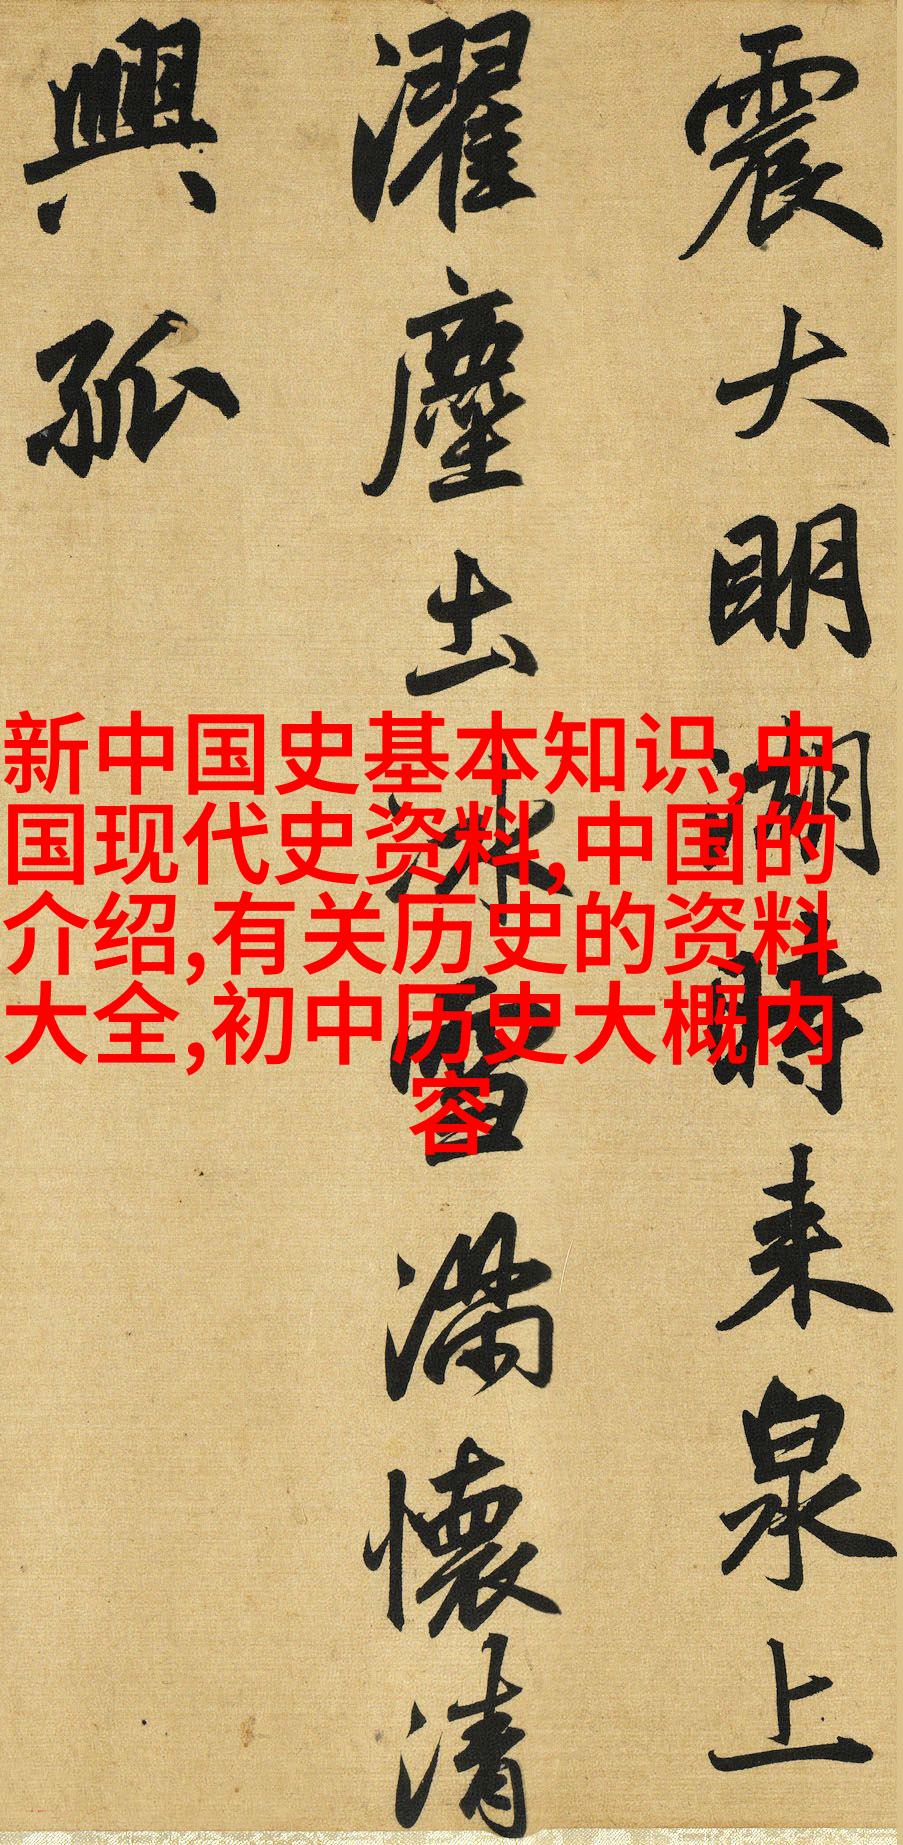 震大明湖時来泉上
濯塵出冰雪滿懷清
興孤
新中国史基本知识,中
国现代史资料,中国的
介绍,有关历史的资料
大全,初中历史大概内
容